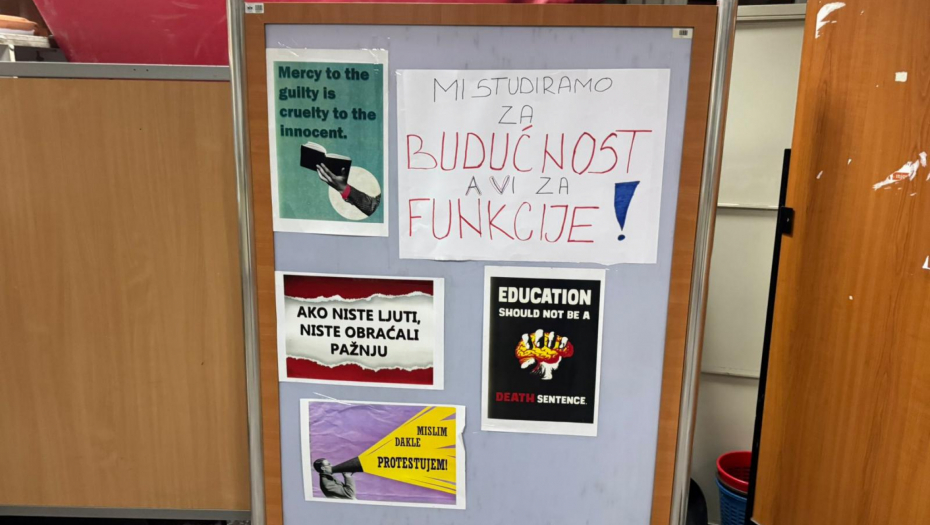 Mercy to the
guilty is
cruelty to the
innocent.
MI STUDIRAMO
ZA
BUDUĆNOST
A VI ZA
FUNKCIJE!
AKO NISTE LJUTI,
NISTE OBRAĆALI
PAŽNJU
EDUCATION
SHOULD NOT BE A
DEATH SENTENCE.
MISLIM
DAKLE
PROTESTUJEM!